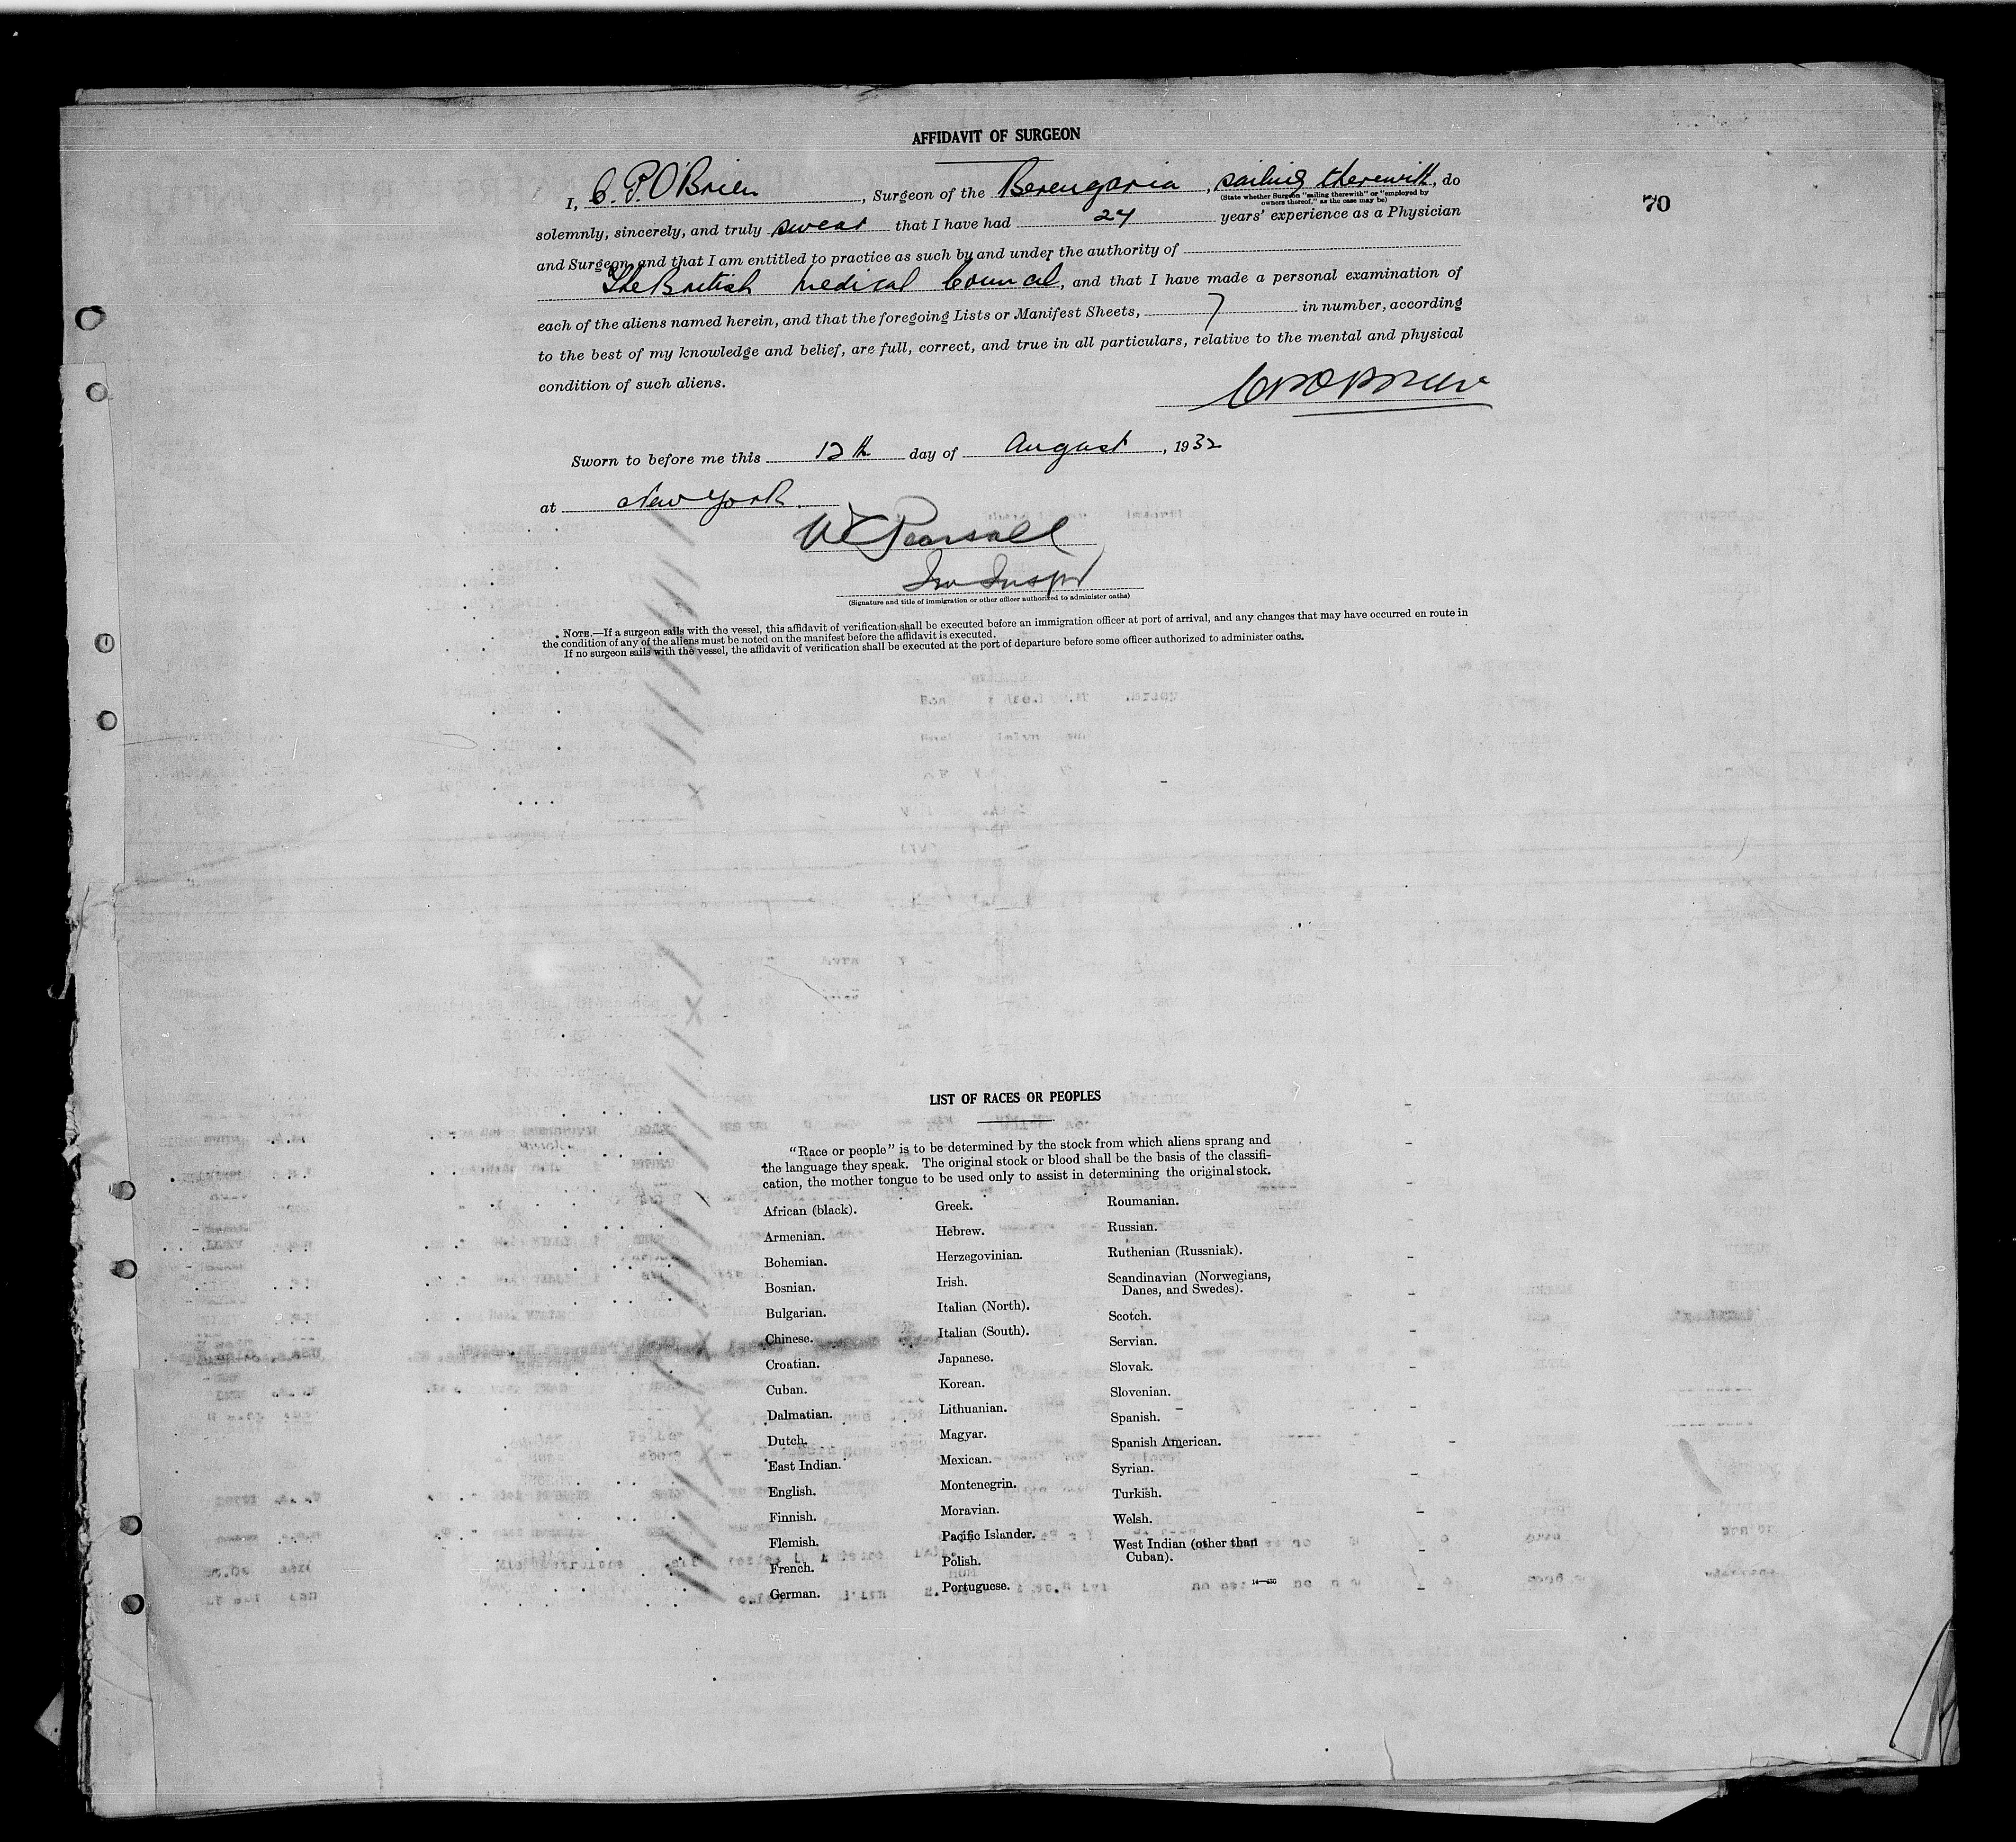 AFFIDAVIT OF SURGEON
70
I, C. P. O'Brien, Surgeon of the Berengaria, sailing therewith, do
(State whether Surgeon "sailing therewith" or "employed by
owners thereof," as the case may be)
solemnly, sincerely, and truly swear that I have had 24 years' experience as a Physician
and Surgeon and that I am entitled to practice as such by and under the authority of
The British Medical Council, and that I have made a personal examination of
each of the aliens named herein, and that the foregoing Lists or Manifest Sheets, 7 in number, according
to the best of my knowledge and belief, are full, correct, and true in all particulars, relative to the mental and physical
condition of such aliens.
CPOBrien
Sworn to before me this 12th day of August, 1932
at New York.
Pearsall
Im Inspr
(Signature and title of immigration or other officer authorized to administer oaths)
NOTE.—If a surgeon sails with the vessel, this affidavit of verification shall be executed before an immigration officer at port of arrival, and any changes that may have occurred en route in
the condition of any of the aliens must be noted on the manifest before the affidavit is executed.
If no surgeon sails with the vessel, the affidavit of verification shall be executed at the port of departure before some officer authorized to administer oaths.
LIST OF RACES OR PEOPLES
"Race or people" is to be determined by the stock from which aliens sprang and
the language they speak. The original stock or blood shall be the basis of the classifi-
cation, the mother tongue to be used only to assist in determining the original stock.
African (black).
Armenian.
Bohemian.
Bosnian.
Bulgarian.
Chinese.
Croatian.
Cuban.
Dalmatian.
Dutch.
East Indian.
English.
Finnish.
Flemish.
French.
German.
Greek.
Hebrew.
Herzegovinian.
Irish.
Italian (North).
Italian (South).
Japanese.
Korean.
Lithuanian.
Magyar.
Mexican.
Montenegrin.
Moravian.
Pacific Islander.
Polish.
Portuguese.
Roumanian.
Russian.
Ruthenian (Russniak).
Scandinavian (Norwegians,
Danes, and Swedes).
Scotch.
Servian.
Slovak.
Slovenian.
Spanish.
Spanish American.
Syrian.
Turkish.
Welsh.
West Indian (other than
Cuban).